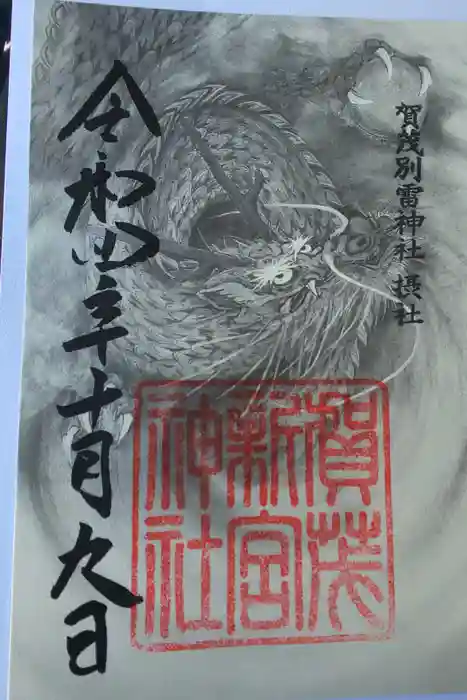 賀茂別雷神社 摂社
賀茂
新宮
神社
令和四年十月九日